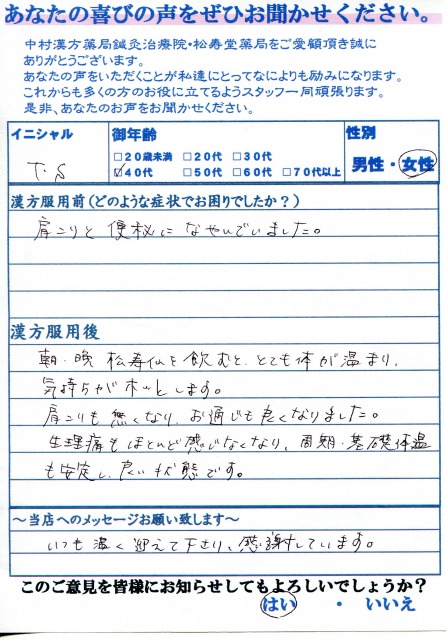 あなたの喜びの声をぜひお聞かせください。
中村漢方薬局鍼灸治療院・松寿堂薬局をご愛顧頂き誠に
ありがとうございます。
あなたの声をいただくことが私達にとってなによりも励みになります。
これからも多くの方のお役に立てるようスタッフ一同頑張ります。
是非、あなたのお声をお聞かせください。
イニシャル 御年齢 性別
□20歳未満 □20代 □30代
T.S ☑40代 □50代 □60代 □70代以上 男性・女性
漢方服用前(どのような症状でお困りでしたか?)
肩こりと便秘になやんでいました。
漢方服用後
朝・晩 松寿仙を飲むと、とても体が温まり、
気持ちがホッとします。
肩こりも無くなり、お通じも良くなりました。
生理痛もほとんど感じなくなり、周期・基礎体温
も安定し、良い状態です。
〜当店へのメッセージお願い致します〜
いつも温く迎えて下さり、感謝しています。
このご意見を皆様にお知らせしてもよろしいでしょうか?
はい ・ いいえ